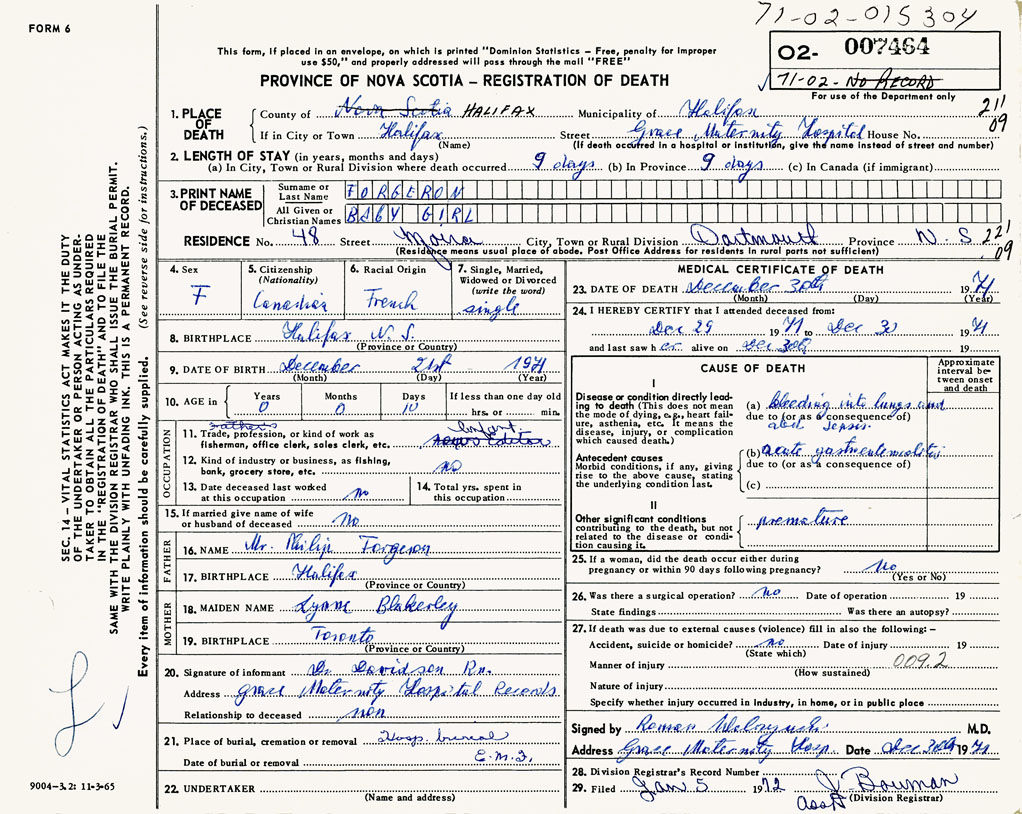 71-02-015304
FORM 6
02- 007464
71-02- No RECORD
For use of the Department only
This form, if placed in an envelope, on which is printed "Dominion Statistics – Free, penalty for improper
use $50," and properly addressed will pass through the mail "FREE"
PROVINCE OF NOVA SCOTIA – REGISTRATION OF DEATH
211
09
1. PLACE OF DEATH
County of Nova Scotia HALIFAX Municipality of Halifax
If in City or Town Halifax Street Grace Maternity Hospital House No.
(Name) (If death occurred in a hospital or institution, give the name instead of street and number)
2. LENGTH OF STAY (in years, months and days)
(a) In City, Town or Rural Division where death occurred 9 days (b) In Province 9 days (c) In Canada (if immigrant)
3. PRINT NAME OF DECEASED
Surname or Last Name FORGERON
All Given or Christian Names BABY GIRL
RESIDENCE No. 48 Street City, Town or Rural Division Dartmouth Province N.S. 221
.09
(Residence means usual place of abode. Post Office Address for residents in rural parts not sufficient)
4. Sex F
5. Citizenship (Nationality) Canadian
6. Racial Origin French
7. Single, Married, Widowed or Divorced (write the word) single
8. BIRTHPLACE Halifax N.S.
(Province or Country)
9. DATE OF BIRTH December 21st 1971
(Month) (Day) (Year)
10. AGE in Years 0 Months 0 Days 10 If less than one day old
hrs. or min.
OCCUPATION
11. Trade, profession, or kind of work as fisherman, office clerk, sales clerk, etc. Infant
12. Kind of industry or business, as fishing, bank, grocery store, etc. no
13. Date deceased last worked at this occupation no
14. Total yrs. spent in this occupation
15. If married give name of wife or husband of deceased No
FATHER
16. NAME Mr. Philip Forgeron
17. BIRTHPLACE Halifax
(Province or Country)
MOTHER
18. MAIDEN NAME Lynne Blakerley
19. BIRTHPLACE Toronto
(Province or Country)
20. Signature of informant Davidson Rn.
Address Grace Maternity Hospital Records
Relationship to deceased non
21. Place of burial, cremation or removal Hosp. burial
Date of burial or removal
22. UNDERTAKER
(Name and address)
MEDICAL CERTIFICATE OF DEATH
23. DATE OF DEATH December 30th 1971
(Month) (Day) (Year)
24. I HEREBY CERTIFY that I attended deceased from:
Dec 29 1971 to Dec 30 1971
and last saw her alive on Dec 30th 19
CAUSE OF DEATH
Approximate interval between onset and death
I
Disease or condition directly leading to death (This does not mean the mode of dying, e.g., heart failure, asthenia, etc. It means the disease, injury, or complication which caused death.)
(a) bleeding into lungs and
due to (or as a consequence of)
sepsis
Antecedent causes
Morbid conditions, if any, giving rise to the above cause, stating the underlying condition last.
(b) acute
due to (or as a consequence of)
(c)
II
Other significant conditions contributing to the death, but not related to the disease or condition causing it.
premature
25. If a woman, did the death occur either during pregnancy or within 90 days following pregnancy? No
(Yes or No)
26. Was there a surgical operation? no Date of operation 19
State findings Was there an autopsy?
27. If death was due to external causes (violence) fill in also the following: –
Accident, suicide or homicide? no Date of injury 19
(State which)
Manner of injury 009.2
(How sustained)
Nature of injury
Specify whether injury occurred in industry, in home, or in public place
Signed by Roman M.D.
Address Grace Maternity Hosp. Date Dec 30th 1971
28. Division Registrar's Record Number
29. Filed Jan 5 1972 J. Bowman
(Division Registrar)
SEC. 14 – VITAL STATISTICS ACT MAKES IT THE DUTY
OF THE UNDERTAKER OR PERSON ACTING AS UNDER-
TAKER TO OBTAIN ALL THE PARTICULARS REQUIRED
IN THE "REGISTRATION OF DEATH" AND TO FILE THE
SAME WITH THE DIVISION REGISTRAR WHO SHALL ISSUE THE BURIAL PERMIT.
WRITE PLAINLY WITH UNFADING INK. THIS IS A PERMANENT RECORD.
Every item of information should be carefully supplied. (See reverse side for instructions.)
9004-3.2: 11-3-65